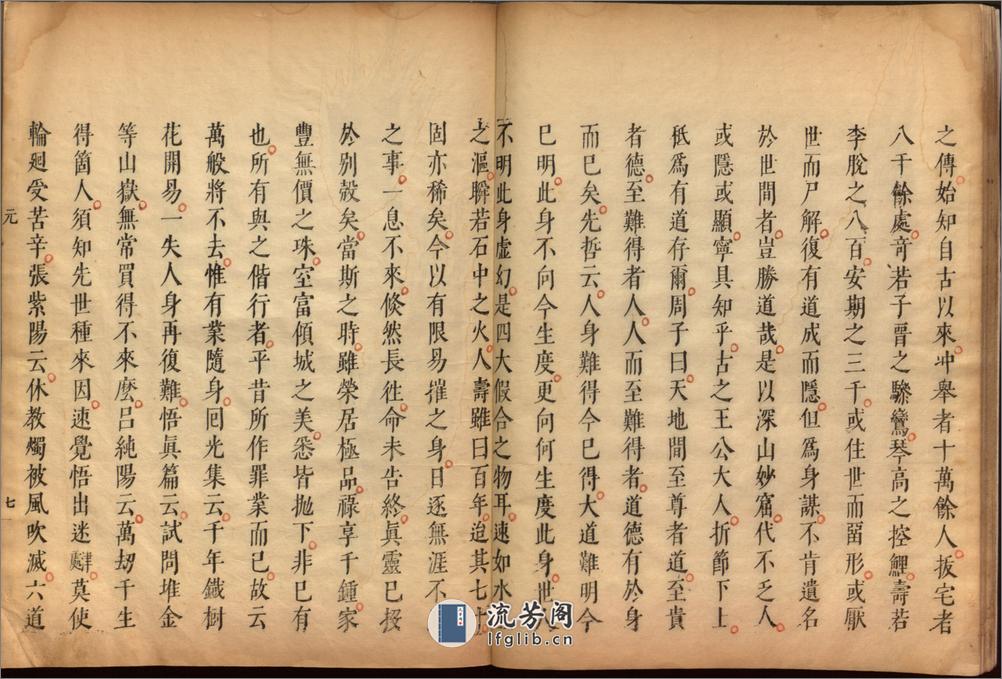 之傳始知自古以來冲舉者十萬餘人拔宅者
八千餘處竒若子晋之驂鸞琴高之控鯉壽若
李脫之八百安期之三千或住世而留形或厭
世而尸解復有道成而隱但爲身謀不肯遺名
於世間者豈勝道哉是以深山妙窟代不乏人
或隱或顯寧具知乎古之王公大人折節下士
秪爲有道存爾周子曰天地間至尊者道至貴
者德至難得者人人而至難得者道德有於身
而已矣先哲云人身難得今已得大道難明今
已明此身不向今生度更向何生度此身世
不明此身虛幻是四大假合之物耳速如水
之漚瞬若石中之火人壽雖曰百年迨其七十
固亦稀矣今以有限易摧之身日逐無涯不
之事一息不來倏然長徃命未告終眞靈已投
於别殼矣當斯之時雖榮居極品祿享千鍾家
豐無價之珠室富傾城之美悉皆抛下非已有
也所有與之偕行者平昔所作罪業而已故云
萬般將不去惟有業隨身囘光集云千年鐵樹
花開易一失人身再復難悟眞篇云試問堆金
等山嶽無常買得不來麼吕純陽云萬刼千生
得箇人須知先世種來因速覺悟出迷肆莫使
輪廻受苦辛張紫陽云休教燭被風吹滅六道
元
七
流芳阁
lfglib.cn